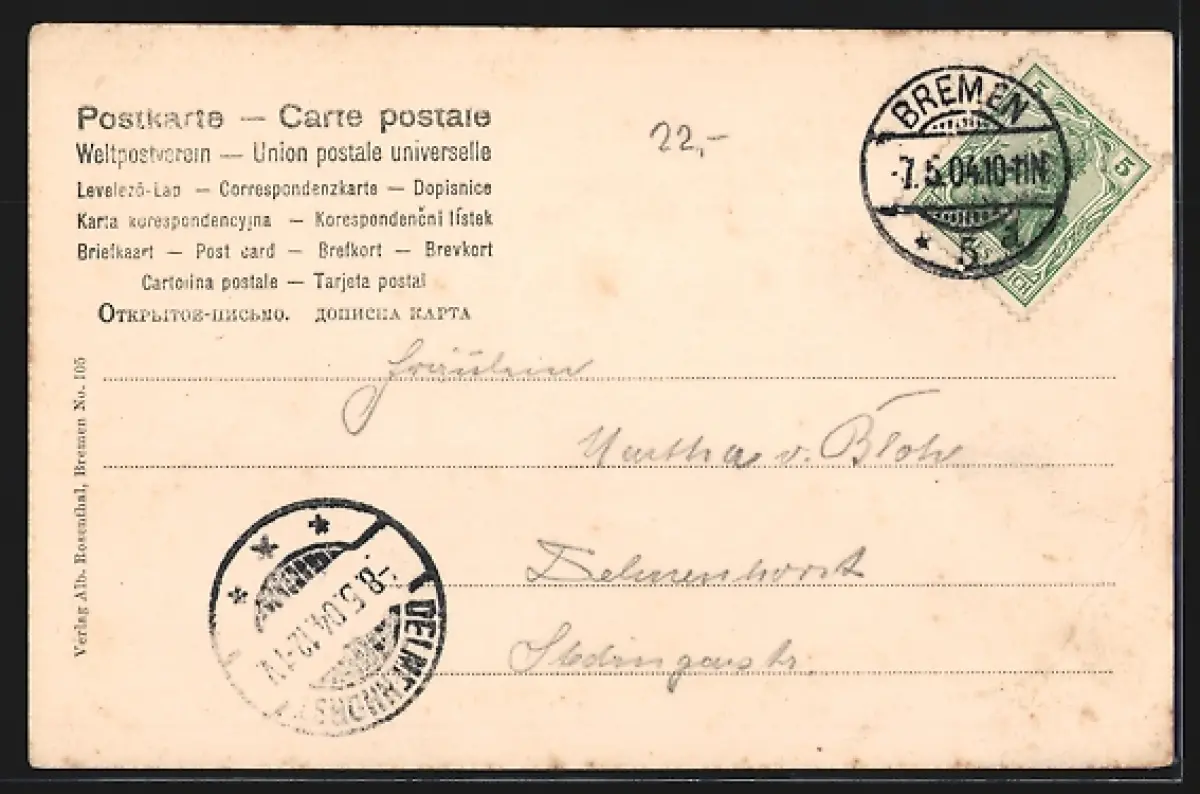 Postkarte — Carte postale
Weltpostverein — Union postale universelle
Levelező-Lap — Correspondenzkarte — Dopisnice
Karta korespondencyjna — Korespondenční lístek
Briefkaart — Post card — Brefkort — Brevkort
Cartolina postale — Tarjeta postal
Открытое-письмо. дописна карта
22,-
BREMEN
7.5.04.10-11N.
* 5 a
5
5
ICH
Fräulein
Martha v. Bloh
Delmenhorst
Stedingerstr.
DELMENHORST
8.5.04.12-1V
* * *
Verlag Alb. Rosenthal, Bremen No. 105